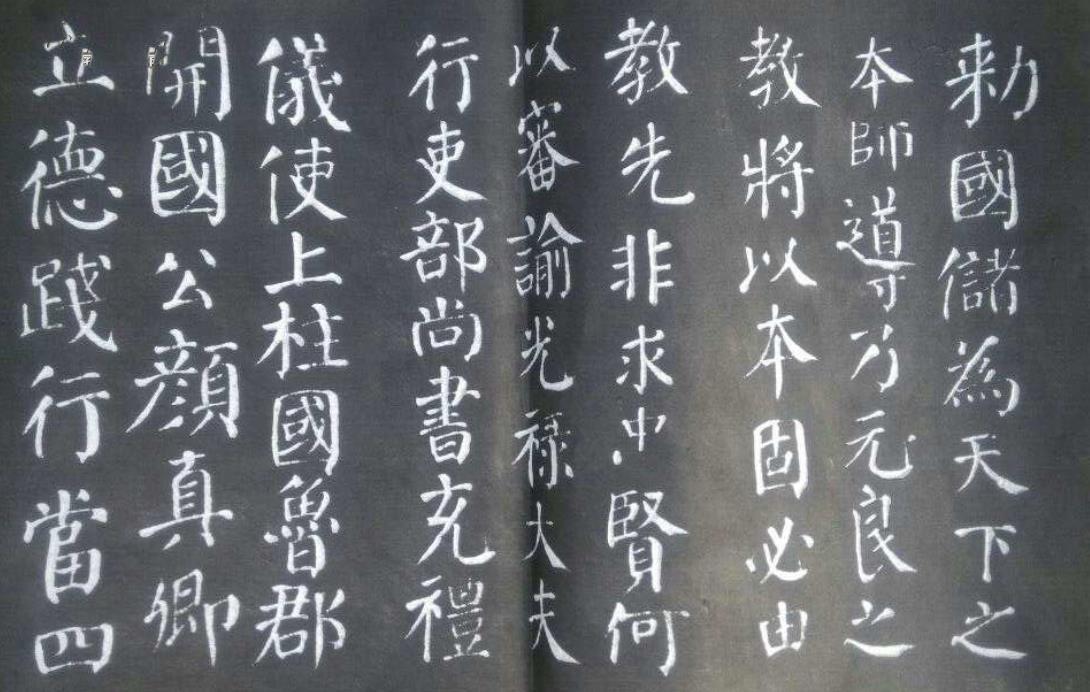 勑國儲為天下之
本師導乃元良之
教將以本固必由
教先非求忠賢何
以審諭光祿大夫
行吏部尚書充禮
儀使上柱國魯郡
開國公顏真卿
立德踐行當四